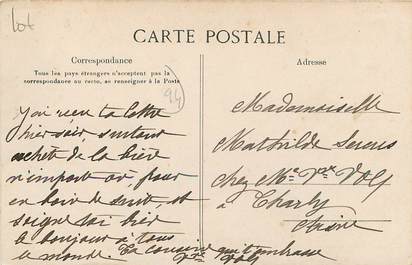 Lot
CARTE POSTALE
Correspondance
Tous les pays étrangers n'acceptent pas la
correspondance au recto, se renseigner à la Poste
94
J'ai reçu ta lettre
hier soir, surtout
achète de la bière
n'importe où, pour
en boire de suite, et
soigne toi bien
le bonjour à tous
le monde. Ta cousine qui t'embrasse
Vve Volf
Adresse
Mademoiselle
Mathilde
chez Me Vve Volf
à Charly
Aisne